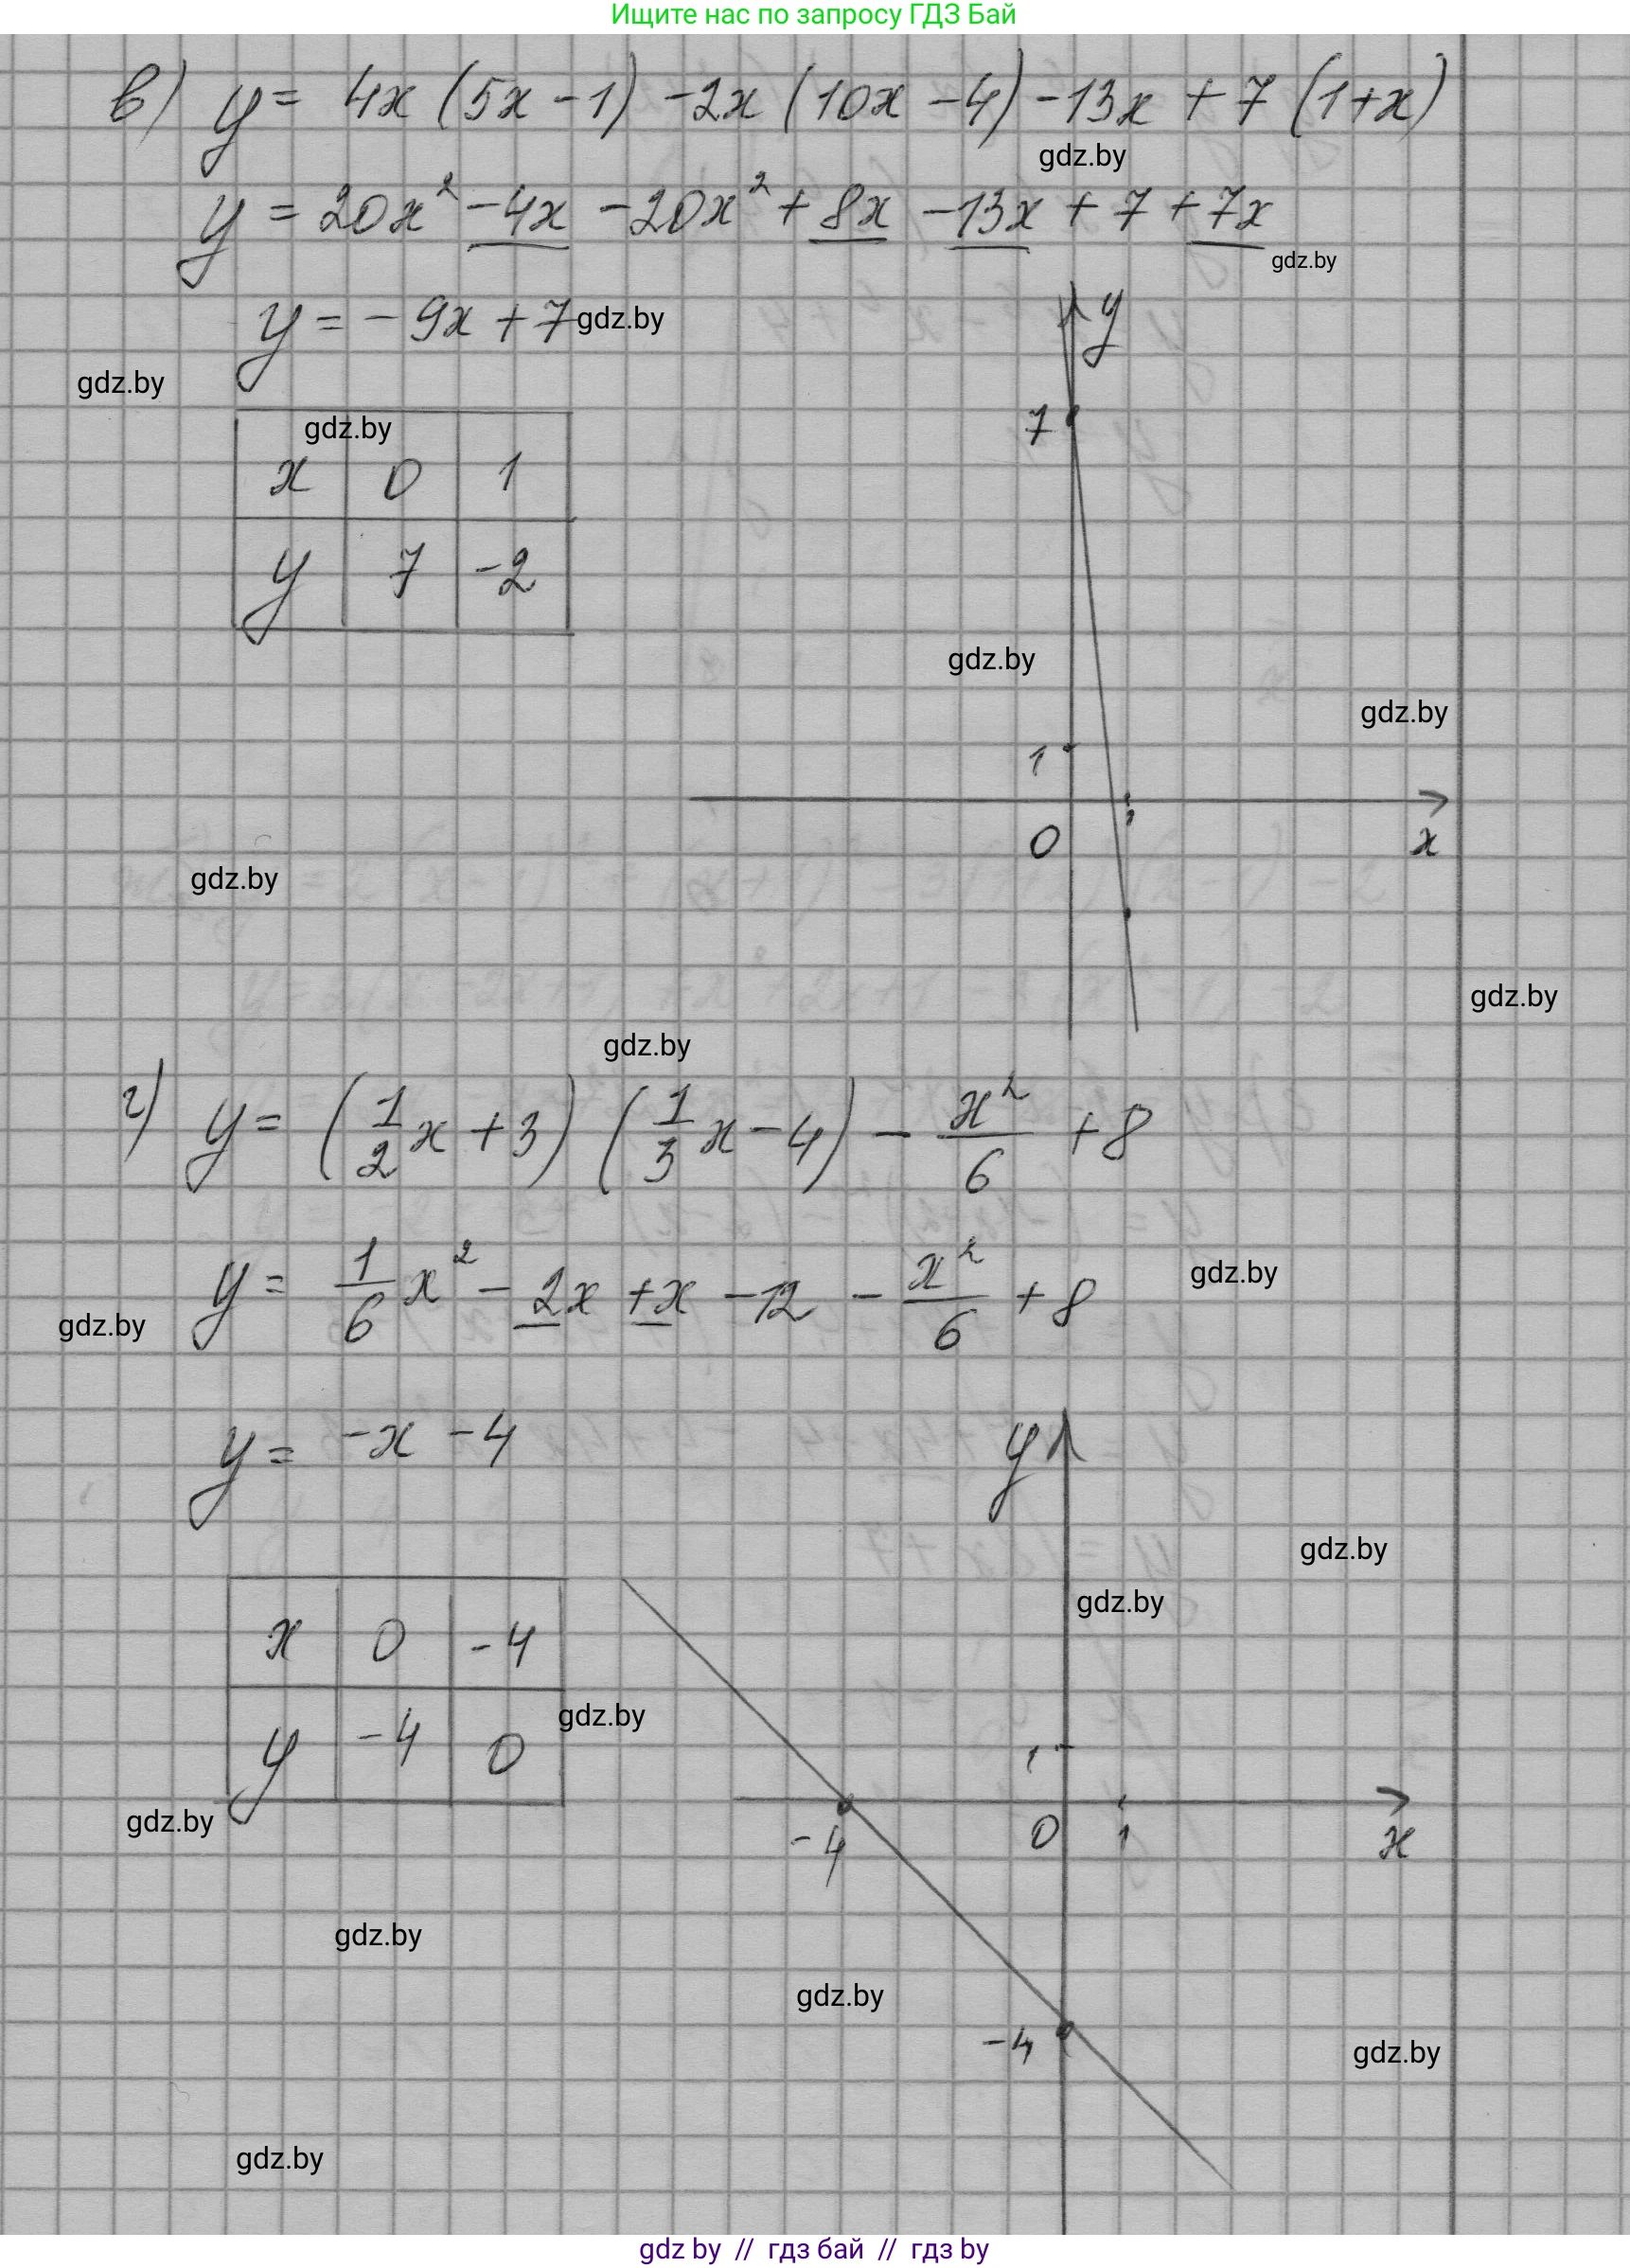 Ищите нас по запросу ГДЗ Бай
в) y = 4x (5x - 1) - 2x (10x - 4) - 13x + 7 (1+x)
gdz.by
y = 20x² - 4x - 20x² + 8x - 13x + 7 + 7x
gdz.by
y = - 9x + 7 gdz.by
y
gdz.by
gdz.by
7
x 0 1
y 7 -2
gdz.by
gdz.by
1
0 1 x
gdz.by
gdz.by
gdz.by
г) y = (1/2 x + 3) (1/3 x - 4) - x²/6 + 8
y = 1/6 x² - 2x + x - 12 - x²/6 + 8
gdz.by
gdz.by
y = -x - 4
y
gdz.by
gdz.by
x 0 -4
y -4 0
gdz.by
1
gdz.by
-4 0 1 x
gdz.by
gdz.by
-4
gdz.by
gdz.by
gdz by // гдз бай // гдз by